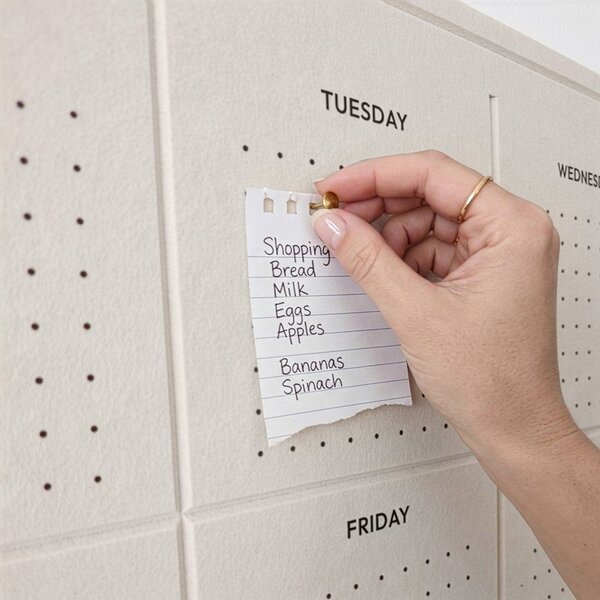 TUESDAY
Shopping
Bread
Milk
Eggs
Apples
Bananas
Spinach
FRIDAY